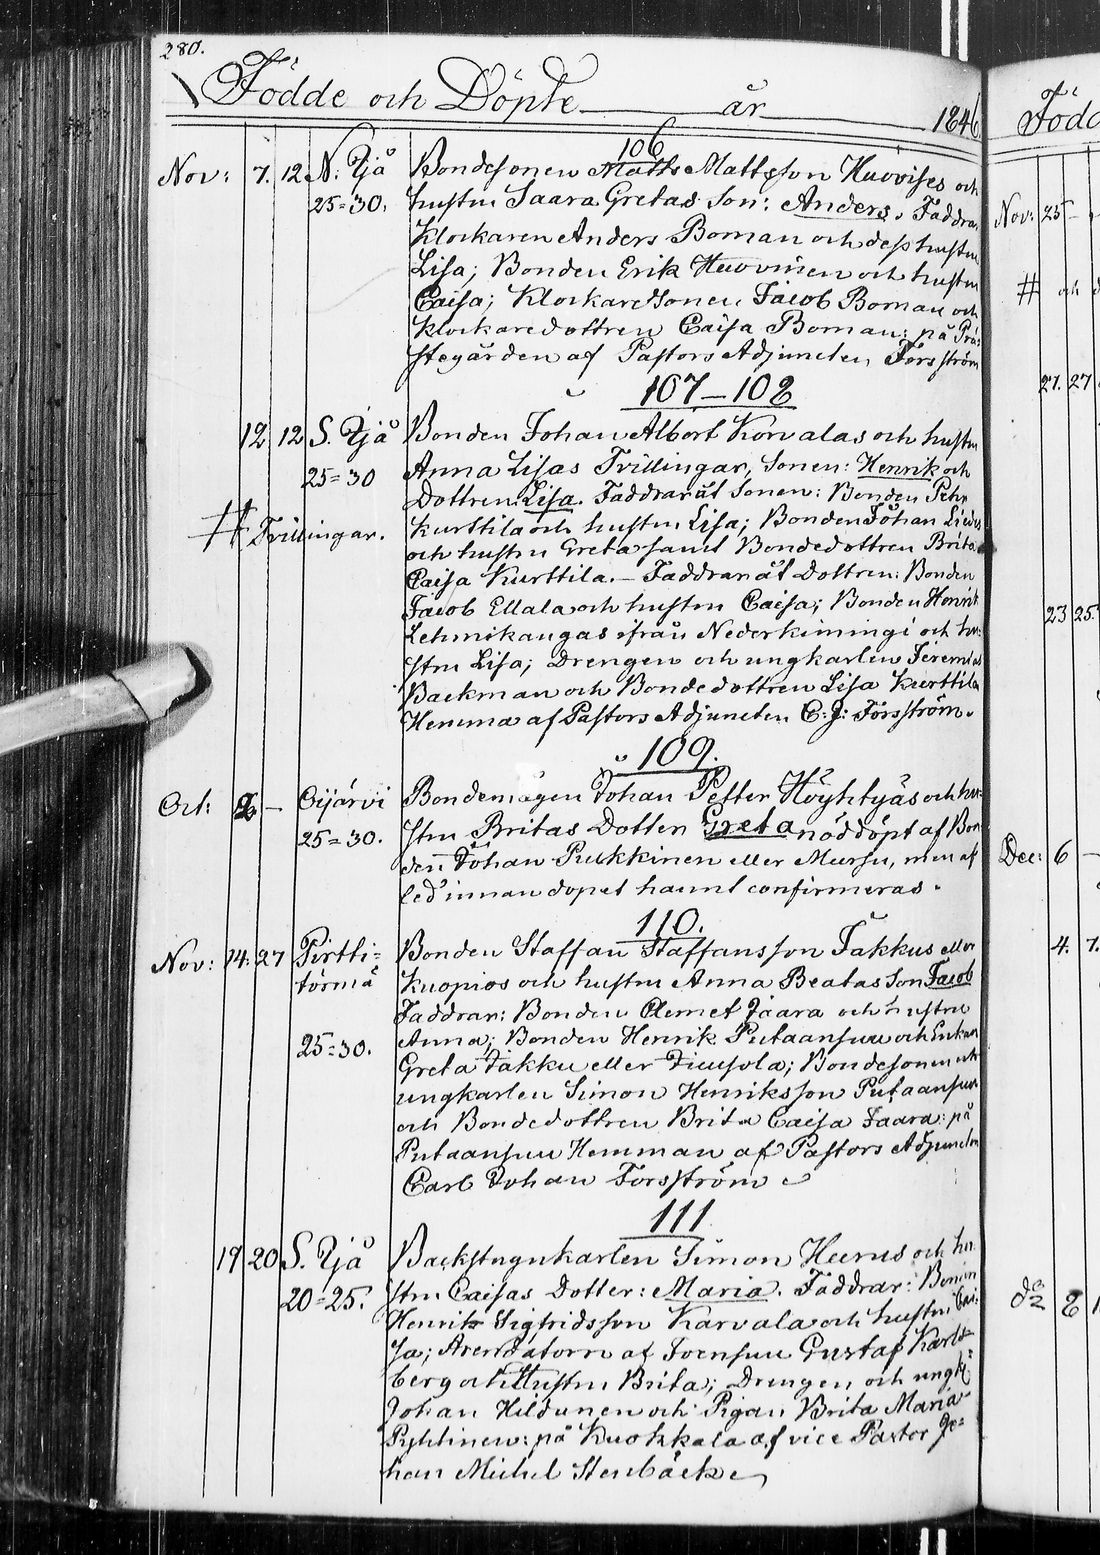 280.
Födde och Döpte år 1846
106
Nov: 7. 12 N. Ijå Bondesonen Matts Mattsson Huovises och
25=30. hustru Saara Gretas Son: Anders. Faddrar
Klockaren Anders Boman och dess hustru
Lisa; Bonden Erik Huovinen och hustru
Caisa; Klockaresonen Jacob Boman och
Klockaredottren Caisa Boman: på Prä-
stegården af Pastors Adjuncten Forsström
107–108
12 12 S. Ijå Bonden Johan Albert Korvalas och hustru
25=30 Anna Lisas Trillingar, Sonen: Henrik och
Dottren: Lisa. Faddrar åt Sonen: Bonden Pehr
# Trillingar. Kurttila och hustru Lisa; Bonden Johan Liedes
och hustru Greta samt Bondedottren Brita
Caisa Kurttila. – Faddrar åt Dottren: Bonden
Jacob Ellala och hustru Caisa; Bonden Henrik
Lehmikangas ifrån Nederkimingi och hu-
stru Lisa; Drengen och ungkarlen Jeremias
Backman och Bondedottren Lisa Kurttila
Hemma af Pastors Adjuncten C: J: Forsström.
109.
Oct: – Oijärvi Bondemågen Johan Petter Höyhtyäs och hu-
25=30. stru Britas Dotter Greta nöddöpt af Bon-
den Johan Pukkinen eller Mursu, men af
led innan dopet hannt confirmeras.
110.
Nov: 14. 27 Pirtti= Bonden Staffan Staffansson Jakkus eller
törmä Kuopios och hustru Anna Beatas Son Jacob
Faddrar: Bonden Clemet Jaara och hustru
25=30. Anna; Bonden Henrik Putaansuu och Enkan
Greta Jakku eller; Bondesonen och
ungkarlen Simon Henriksson Putaansuu
och Bondedottren Brita Caisa Jaara: på
Putaansuu Hemman af Pastors Adjuncten
Carl Johan Forsström
111
19 20 S. Ijå Backstugukarlen Simon Heerus och hu-
20=25. stru Caisas Dotter: Maria. Faddrar: Bonden
Henrik Sigfridsson Karvala och hustru Cai-
sa; Arendatorn af Joensuu Gustaf Karls-
berg och Hustru Brita; Drengen och ungk:
Johan Hildunen och Pigan Brita Maria
Pyhtinen: på Kuokkala af vice Pastor Jo=
han Michel Stenbäck
Född
Nov: 25 –
# och
27. 27
23 25.
Dec: 6 –
4. 7.
do 8